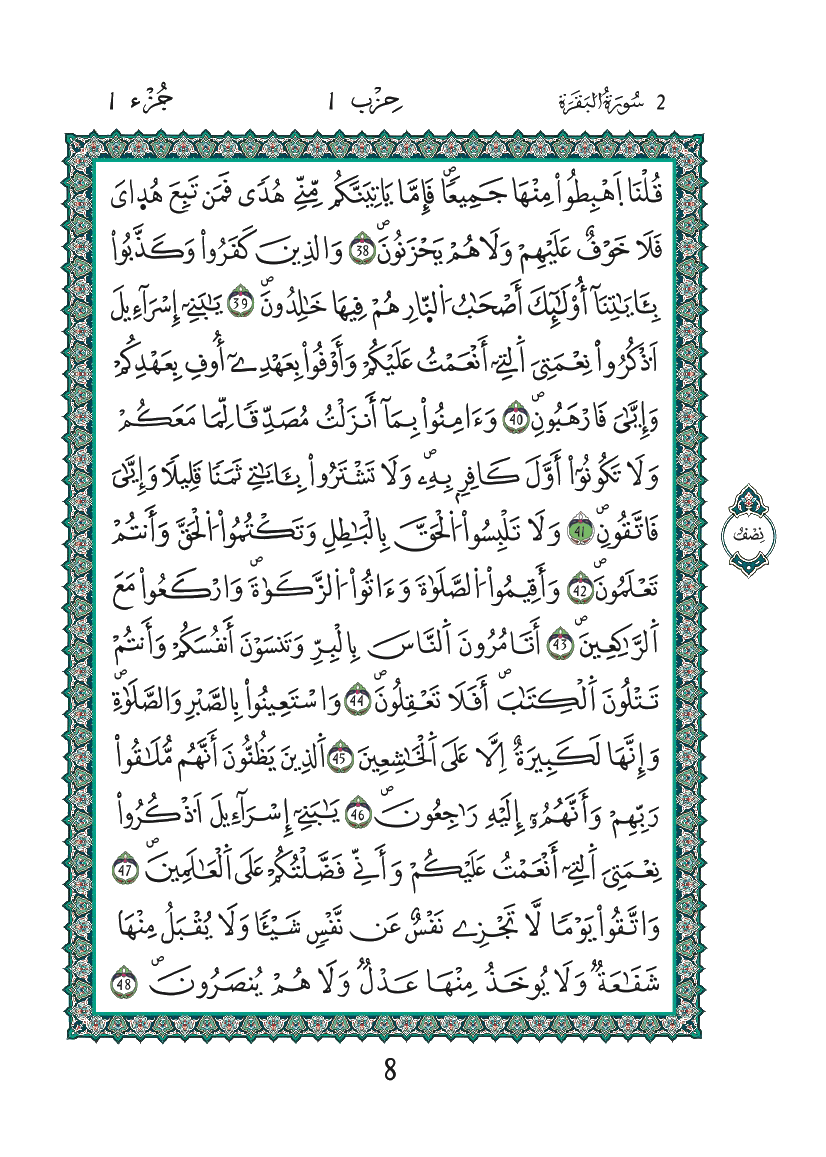 2 سُورَةُ الْبَقَرَةِ حِزْب 1 جُزْء 1
قُلْنَا اَهْبِطُواْ مِنْهَا جَمِيعاٗۖ فَإِمَّا يَاتِيَنَّكُم مِّنِّے هُدٗى فَمَن تَبِعَ هُد۪ايَ
فَلَا خَوْفٌ عَلَيْهِمْ وَلَا هُمْ يَحْزَنُونَۖ 38 وَالذِينَ كَفَرُواْ وَكَذَّبُواْ
بِـَٔايَٰتِنَآ أُوْلَٰٓئِكَ أَصْحَٰبُ اُ۬لنّ۪ارِ هُمْ فِيهَا خَٰلِدُونَۖ 39 يَٰبَنِےٓ إِسْرَآءِيلَ
اَ۟ذْكُرُواْ نِعْمَتِيَ اَ۬لتِےٓ أَنْعَمْتُ عَلَيْكُمْ وَأَوْفُواْ بِعَهْدِےٓ أُوفِ بِعَهْدِكُمْ
وَإِيَّٰيَ فَارْهَبُونِۖ 40 وَءَامِنُواْ بِمَآ أَنزَلْتُ مُصَدِّقاٗ لِّمَا مَعَكُمْ
وَلَا تَكُونُوٓاْ أَوَّلَ كَافِرِۢ بِهِۦۖ وَلَا تَشْتَرُواْ بِـَٔايَٰتِے ثَمَناٗ قَلِيلاٗ وَإِيَّٰيَ
فَاتَّقُونِۖ 41 وَلَا تَلْبِسُواْ اُ۬لْحَقَّ بِالْبَٰطِلِ وَتَكْتُمُواْ اُ۬لْحَقَّ وَأَنتُمْ
تَعْلَمُونَۖ 42 وَأَقِيمُواْ اُ۬لصَّلَوٰةَ وَءَاتُواْ اُ۬لزَّكَوٰةَۖ وَارْكَعُواْ مَعَ
اَ۬لرَّٰكِعِينَۖ 43 أَتَامُرُونَ اَ۬لنَّاسَ بِالْبِرِّ وَتَنسَوْنَ أَنفُسَكُمْ وَأَنتُمْ
تَتْلُونَ اَ۬لْكِتَٰبَۖ أَفَلَا تَعْقِلُونَۖ 44 وَاسْتَعِينُواْ بِالصَّبْرِ وَالصَّلَوٰةِۖ
وَإِنَّهَا لَكَبِيرَةٌ اِلَّا عَلَى اَ۬لْخَٰشِعِينَ 45 اَ۬لذِينَ يَظُنُّونَ أَنَّهُم مُّلَٰقُواْ
رَبِّهِمْ وَأَنَّهُمُۥٓ إِلَيْهِ رَٰجِعُونَۖ 46 يَٰبَنِےٓ إِسْرَآءِيلَ اَ۟ذْكُرُواْ
نِعْمَتِيَ اَ۬لتِےٓ أَنْعَمْتُ عَلَيْكُمْ وَأَنِّے فَضَّلْتُكُمْ عَلَى اَ۬لْعَٰلَمِينَۖ 47
وَاتَّقُواْ يَوْماٗ لَّا تَجْزِے نَفْسٌ عَن نَّفْسٖ شَيْـٔاٗ وَلَا يُقْبَلُ مِنْهَا
شَفَٰعَةٞ وَلَا يُوخَذُ مِنْهَا عَدْلٞ وَلَا هُمْ يُنصَرُونَۖ 48
نِصْف
8